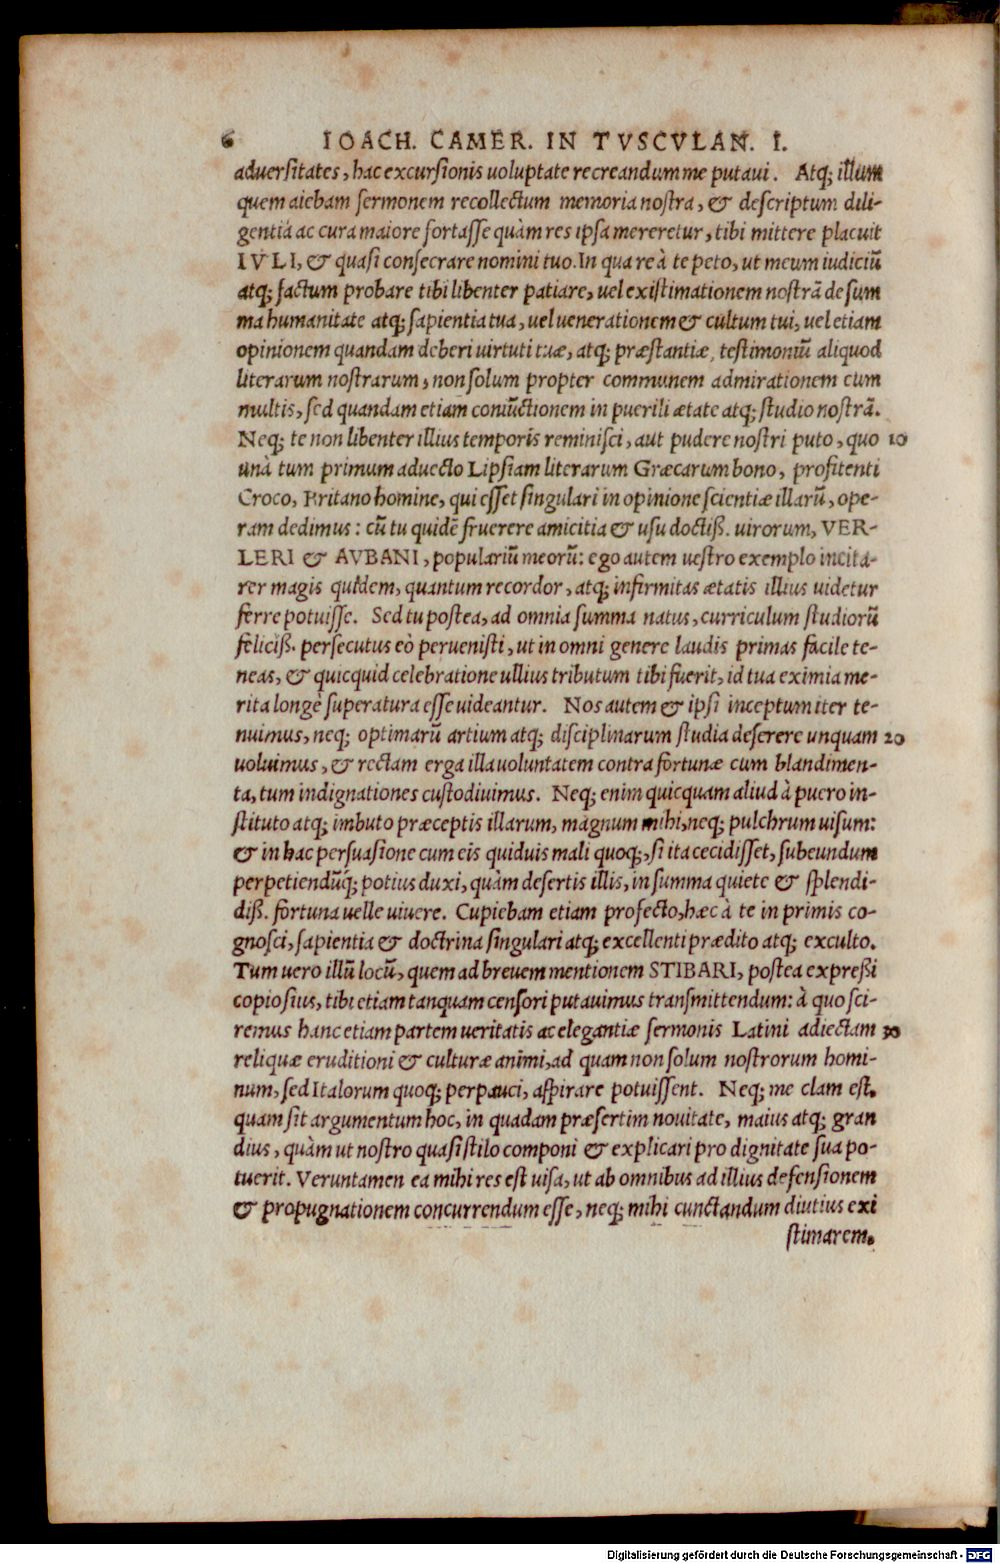 6 IOACH. CAMER. IN TVSCVLAN. I.
aduersitates, hac excursionis uoluptate recreandum me putaui. Atq; illum
quem aiebam sermonem recollectum memoria nostra, & descriptum dili-
gentiá ac cura maiore fortasse quàm res ipsa mereretur, tibi mittere placuit
IVLI, & quasi consecrare nomini tuo. In qua re à te peto, ut meum iudiciũ
atq; factum probare tibi libenter patiare, uel existimationem nostrã de sum
ma humanitate atq; sapientia tua, uel uenerationem & cultum tui, uel etiam
opinionem quandam deberi uirtuti tuæ, atq; præstantiæ, testimoniũ aliquod
literarum nostrarum, non solum propter communem admirationem cum
multis, sed quandam etiam coniũctionem in puerili ætate atq; studio nostrã.
Neq; te non libenter illius temporis reminisci, aut pudere nostri puto, quo 10
unà tum primum aduecto Lipsiam literarum Græcarum bono, profitenti
Croco, Britano homine, qui esset singulari in opinione scientiæ illarũ, ope-
ram dedimus: cũ tu quidẽ fruerere amicitia & usu doctiß. uirorum, VER-
LERI & AVBANI, populariũ meorũ: ego autem uestro exemplo incita-
rer magis quidem, quantum recordor, atq; infirmitas ætatis illius uidetur
ferre potuisse. Sed tu postea, ad omnia summa natus, curriculum studiorũ
feliciß. persecutus eò peruenisti, ut in omni genere laudis primas facile te-
neas, & quicquid celebratione ullius tributum tibi fuerit, id tua eximia me-
rita longè superatura esse uideantur. Nos autem & ipsi inceptum iter te-
nuimus, neq; optimarũ artium atq; disciplinarum studia deserere unquam 20
uoluimus, & rectam erga illa uoluntatem contra fortunæ cum blandimen-
ta, tum indignationes custodiuimus. Neq; enim quicquam aliud à puero in-
stituto atq; imbuto præceptis illarum, magnum mihi, neq; pulchrum uisum:
& in hac persuasione cum eis quiduis mali quoq;, si ita cecidisset, subeundum
perpetiendũq́; potius duxi, quàm desertis illis, in summa quiete & splendi-
diß. fortuna uelle uiuere. Cupiebam etiam profecto, hæc à te in primis co-
gnosci, sapientia & doctrina singulari atq; excellenti prædito atq; exculto.
Tum uero illũ locũ, quem ad breuem mentionem STIBARI, postea expreßi
copiosius, tibi etiam tanquam censori putauimus transmittendum: à quo sci-
remus hanc etiam partem ueritatis ac elegantiæ sermonis Latini adiectam 30
reliquæ eruditioni & culturæ animi, ad quam non solum nostrorum homi-
num, sed Italorum quoq; perpauci, aspirare potuissent. Neq; me clam est.
quam sit argumentum hoc, in quadam præsertim nouitate, maius atq; gran
dius, quàm ut nostro quasi stilo componi & explicari pro dignitate sua po-
tuerit. Veruntamen ea mihi res est uisa, ut ab omnibus ad illius defensionem
& propugnationem concurrendum esse, neq; mihi cunctandum diutius exi
stimarem.
Digitalisierung gefördert durch die Deutsche Forschungsgemeinschaft - DFG